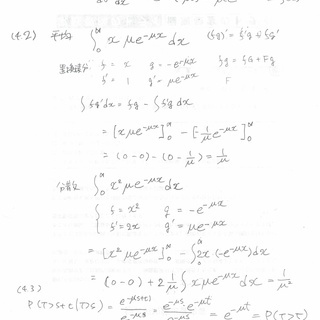 (4.2) 平均 ∫₀^∞ x μe^{-μx} dx (fg)' = f'g + fg'
f = x g = -e^{-μx} fg = fG + Fg
f' = 1 g' = μe^{-μx} F
∫fg'dx = fg - ∫f'g dx
= [xμe^{-μx}]₀^∞ - [-1/μ e^{-μx}]₀^∞
= (0-0) - (0 - 1/μ) = 1/μ
分散 ∫₀^∞ x² μe^{-μx} dx
{ f = x² g = -e^{-μx}
f' = 2x g' = μe^{-μx}
= [x² μe^{-μx}]₀^∞ - ∫₀2x(-e^{-μx})dx
= (0-0) + 2 1/μ ∫x μe^{-μx}dx = 1/μ²
(4.3)
P(T>s+t|T>s) = e^{-μ(s+t)}/e^{-μs} = e^{-μs}·e^{-μt}/e^{-μs} = e^{-μt} = P(T>t)